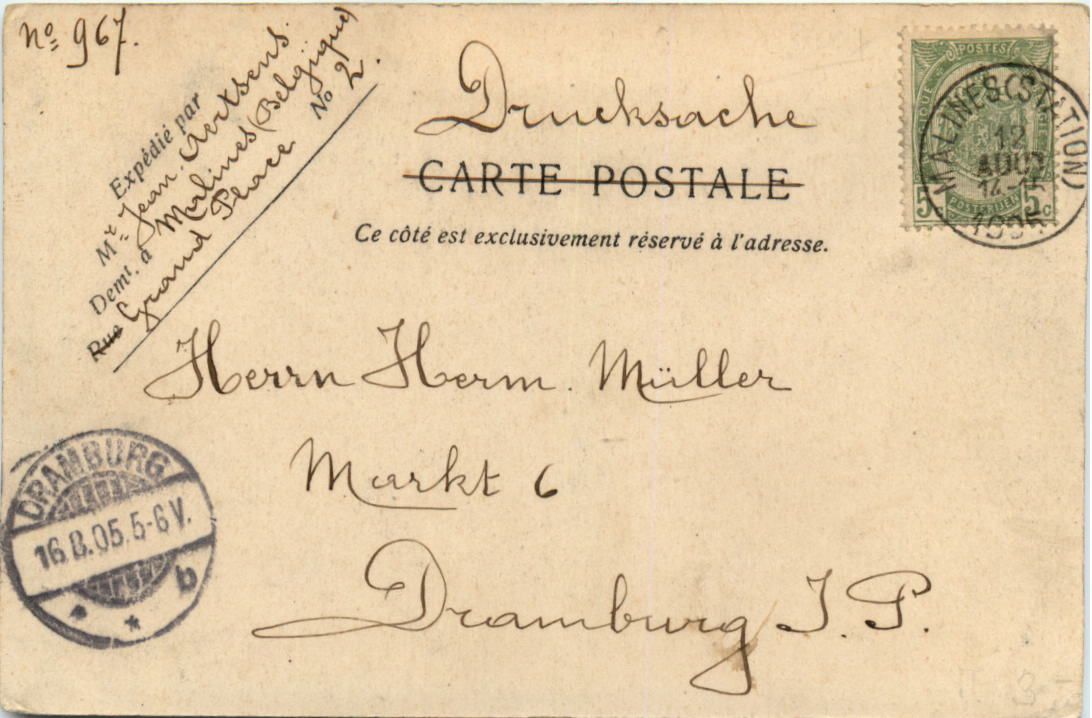 Nº 967.
Expédié par
Mr Jean Aertsens.
Demt. à Malines (Belgique)
Rue Grand Place No 2.
Drucksache
CARTE POSTALE
Ce côté est exclusivement réservé à l'adresse.
POSTES
5c 5c
MALINES (STATION)
12
AOUT
1905
Herrn Herm. Müller
Markt 6
Dramburg I. P.
DRAMBURG
16.8.05.5-6V.
* * b